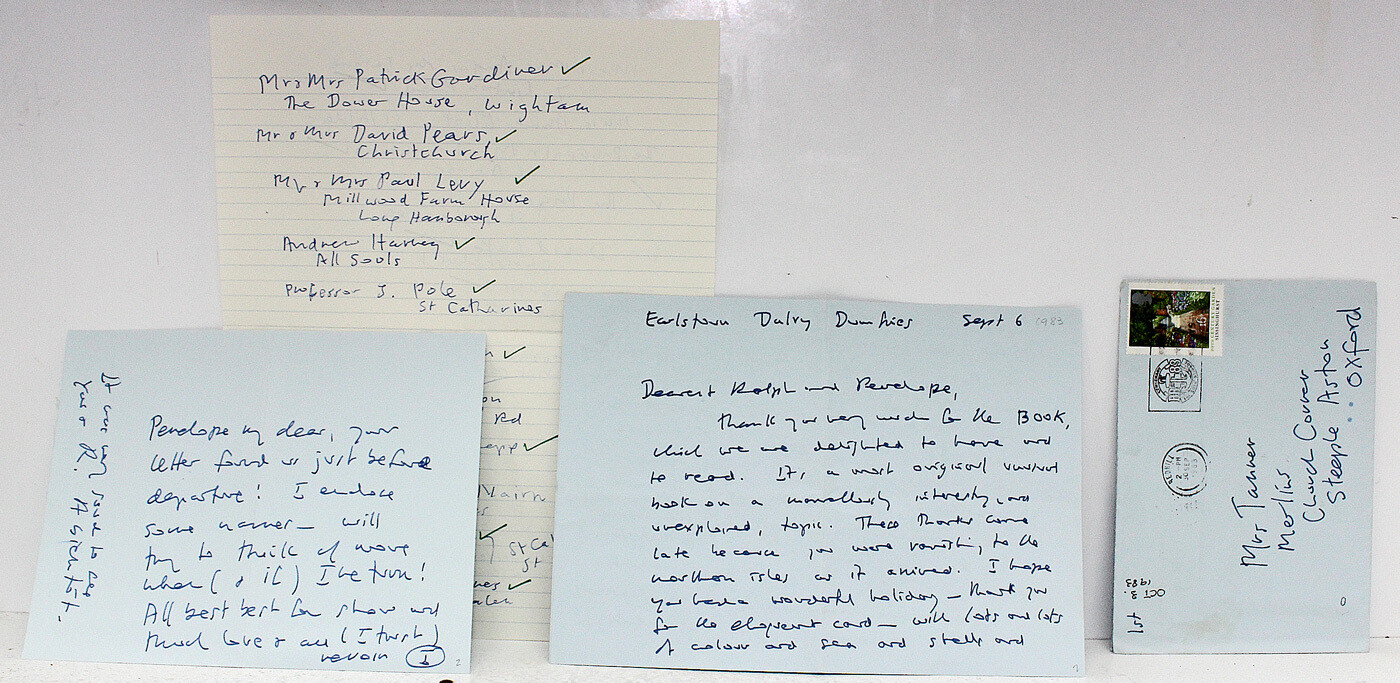 Mr & Mrs Patrick Gardiner ✓
The Dower House, Wightam
Mr & Mrs David Pears, ✓
Christchurch
Mr & Mrs Paul Levy ✓
Millwood Farm House
Long Hanborough
Andrew Harvey ✓
All Souls
Professor J. Pole ✓
St Catharines
✓
✓
Nairn
✓
St Ca
St
✓
Penelope my dear, your
letter found us just before
departure! I enclose
some names — will
try to think of more
when (& if) I return!
All best best for show and
much love & au (I trust)
revoir I
It was very good to see
you & R. A bientôt -
2
Earlstown Dalry Dumfries Sept 6 1983
Dearest Ralph and Penelope,
Thank you very much for the BOOK,
which we are delighted to have and
to read. It's a most original unusual
book on a marvellously interesting, and
unexplored, topic. These thanks come
late because you were vanishing to the
northern isles as it arrived. I hope
you had a wonderful holiday — thank you
for the eloquent card — with lots and lots
of colour and sea and shells and
SISSINGHURST
REDHILL
2 PM
SEP
1983
Mrs Tanner
Merlins
Church Corner
Steeple Aston
Oxford
OCT 3.
1983